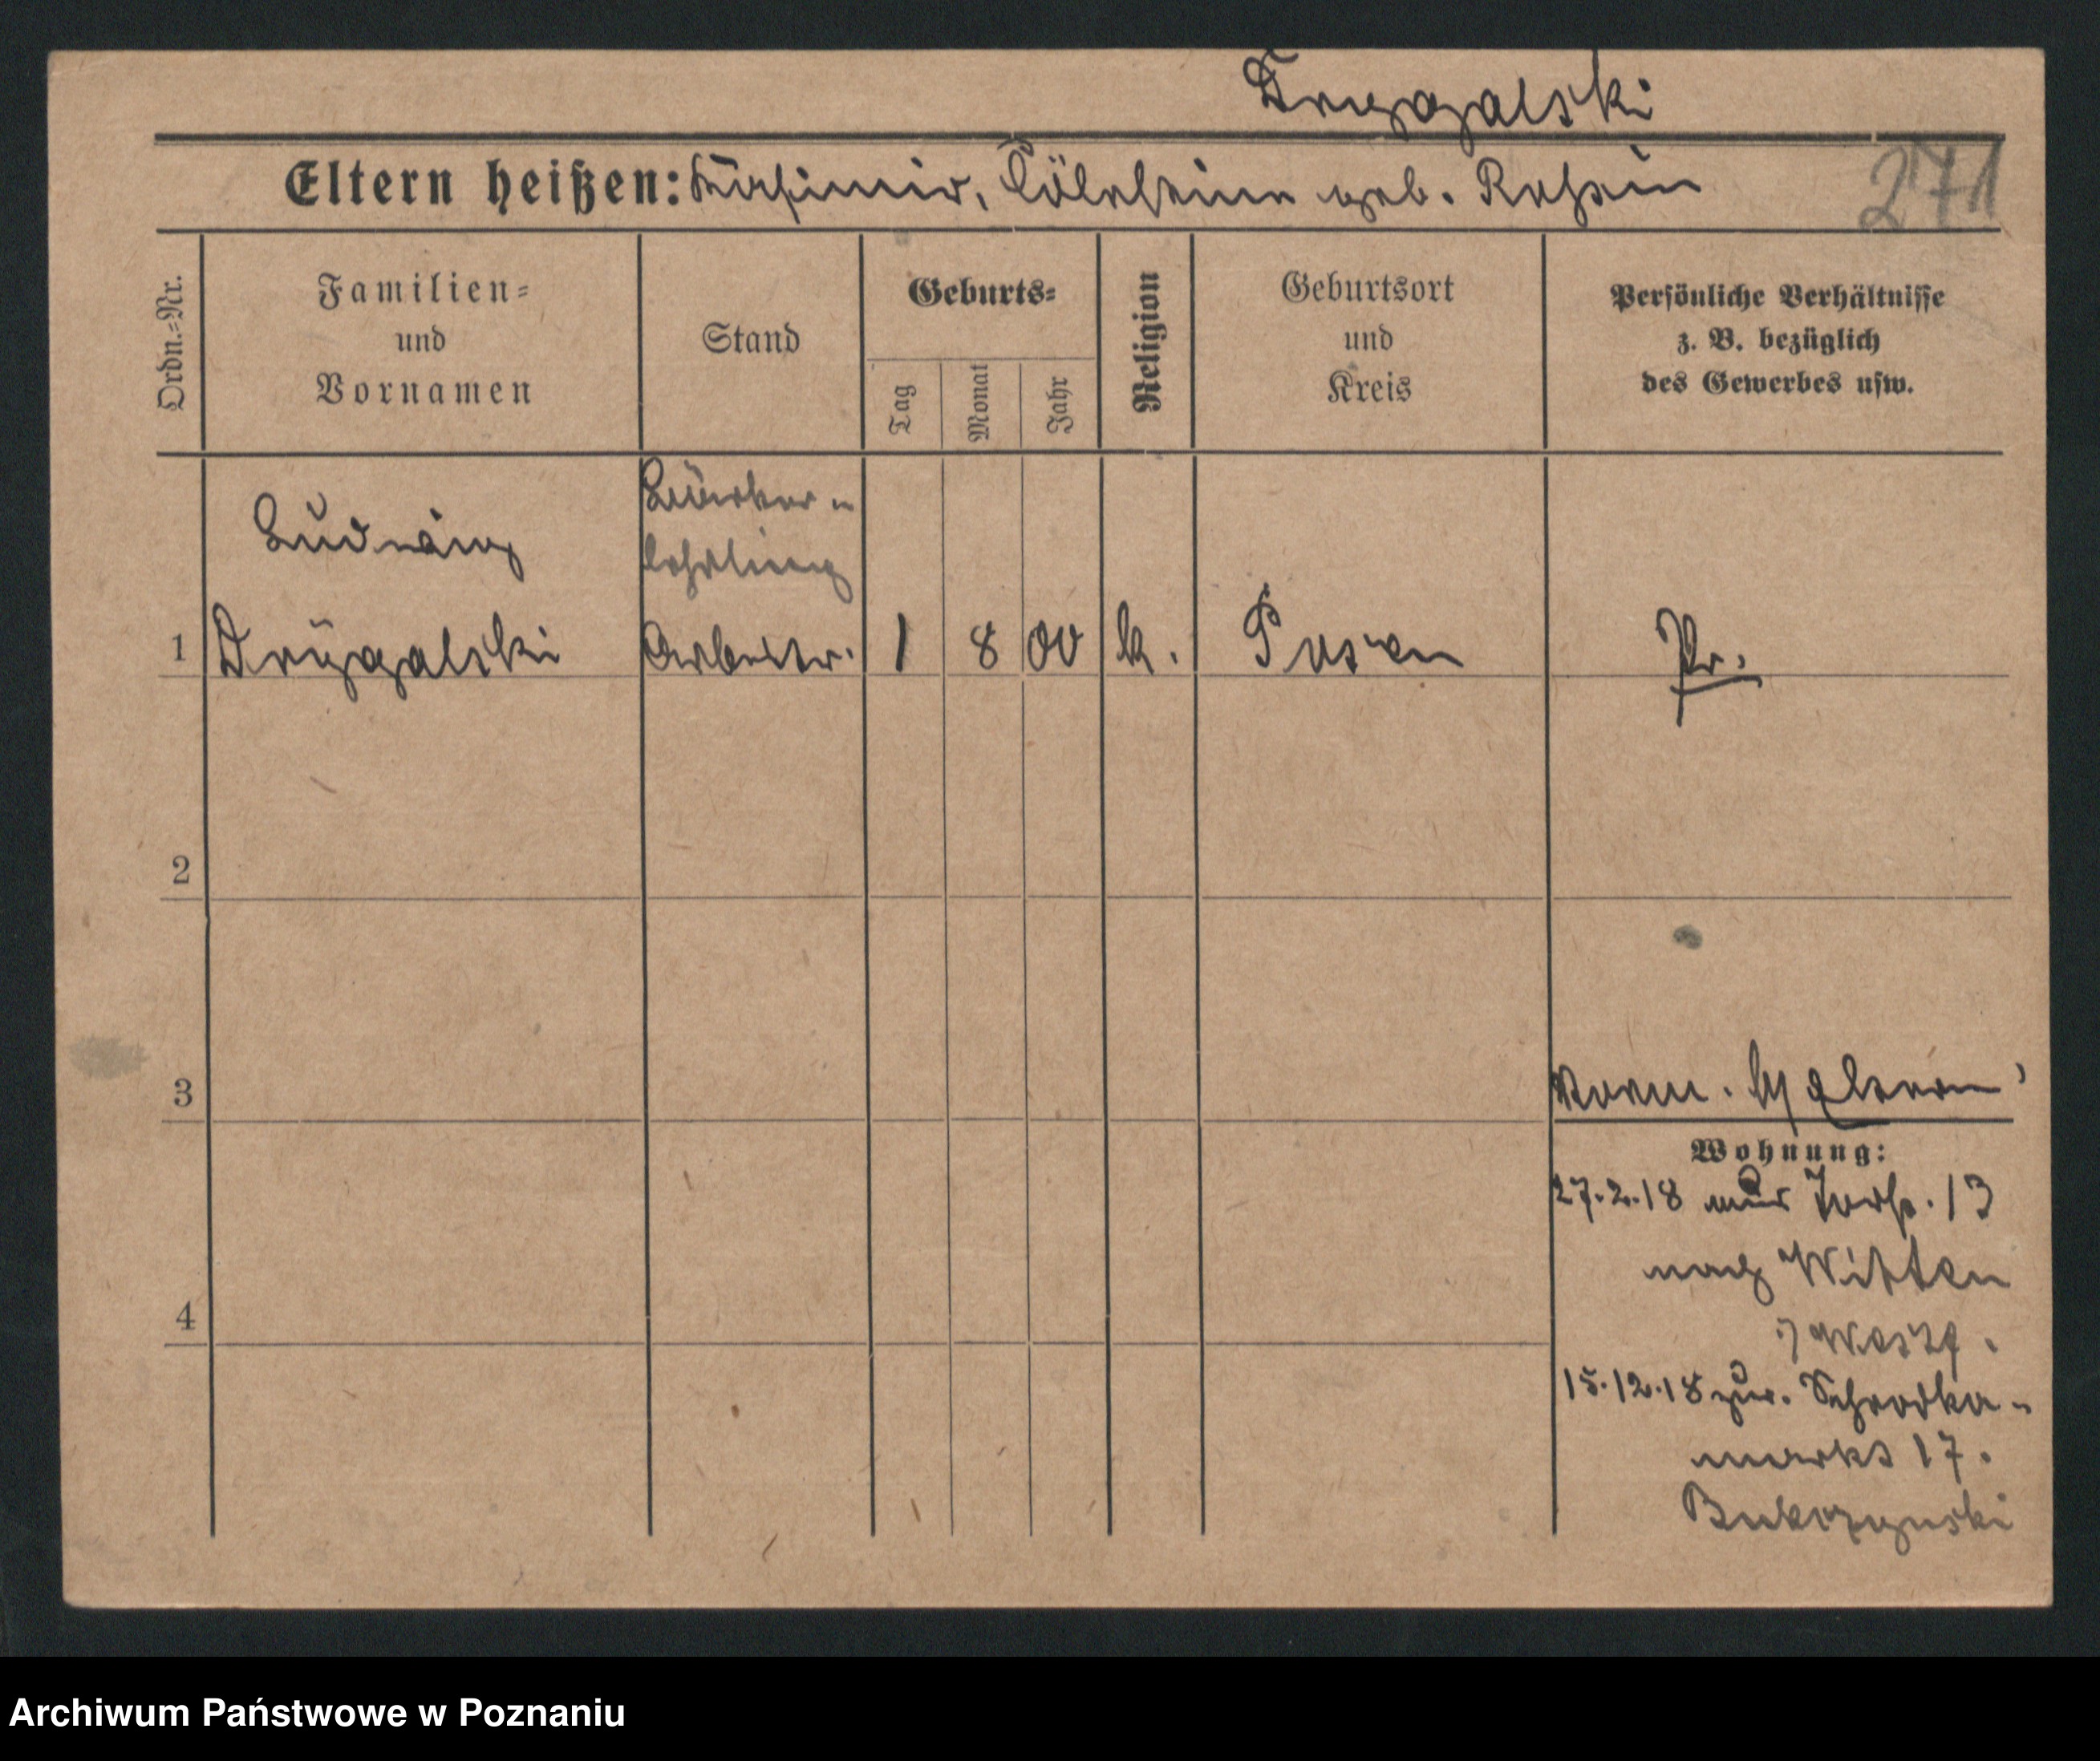 Drygalski
Eltern heißen: Kasimir, Cölestine geb. Rossin
271
Ordn.-Nr.
Familien-
und
Vornamen
Stand
Geburts-
Tag
Monat
Jahr
Religion
Geburtsort
und
Kreis
Persönliche Verhältnisse
z. B. bezüglich
des Gewerbes usw.
Ludwig
lehrling
1 Drygalski Arbeiter. 1 8 00 k. Posen Pr.
2
3
4
Wohnung:
27.2.18 13
nach Witten
i/Westf.
15.12.18 zur. Schrodka-
markt 17.
Bukczynski
Archiwum Państwowe w Poznaniu